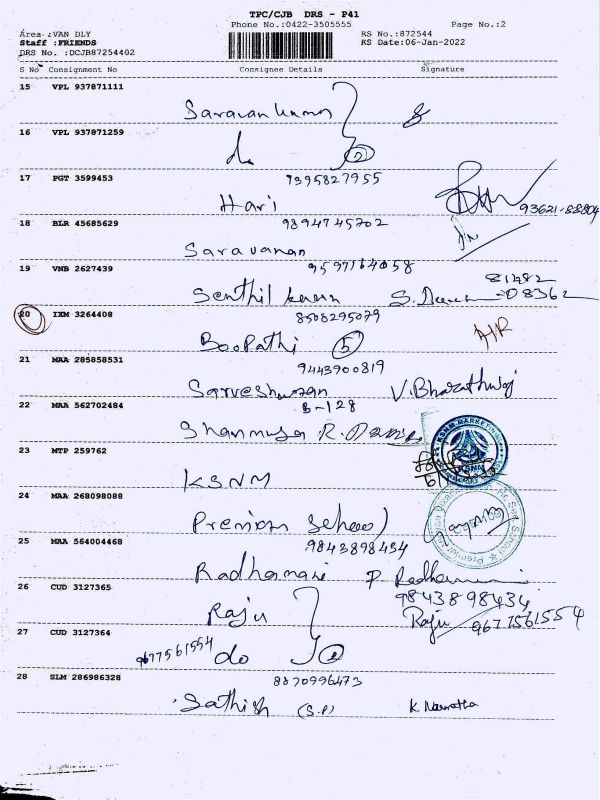 TPC/CJB DRS - P41
Phone No.:0422-3505555
Page No.:2
Area :VAN DLY
RS No.:872544
Staff :FRIENDS
RS Date:06-Jan-2022
DRS No. :DCJB87254402
S No Consignment No Consignee Details Signature
15 VPL 937871111
Saravan kumar
16 VPL 937871259
do 2
17 PGT 3599453 7395827955
Hari 93621-88804
18 BLR 45685629 9894745702
Saravanan
19 VNB 2627439 9597164058
Senthil kumar
20 IXM 3264408 8508295079
Boopathi 5
21 MAA 285858531 9443900819
Sarveshwaran V. Bharathwaj
22 MAA 562702484 B-128
Shanmuga R.
23 MTP 259762
KSNM
24 MAA 268098088
Premium School
25 MAA 564004468 9843898434
Radhamani P Radhamani
26 CUD 3127365 9843898434
Raju Raju 9677561554
27 CUD 3127364
9677561554 do 2
28 SLM 286986328 8870996473
Sathish (S.P)